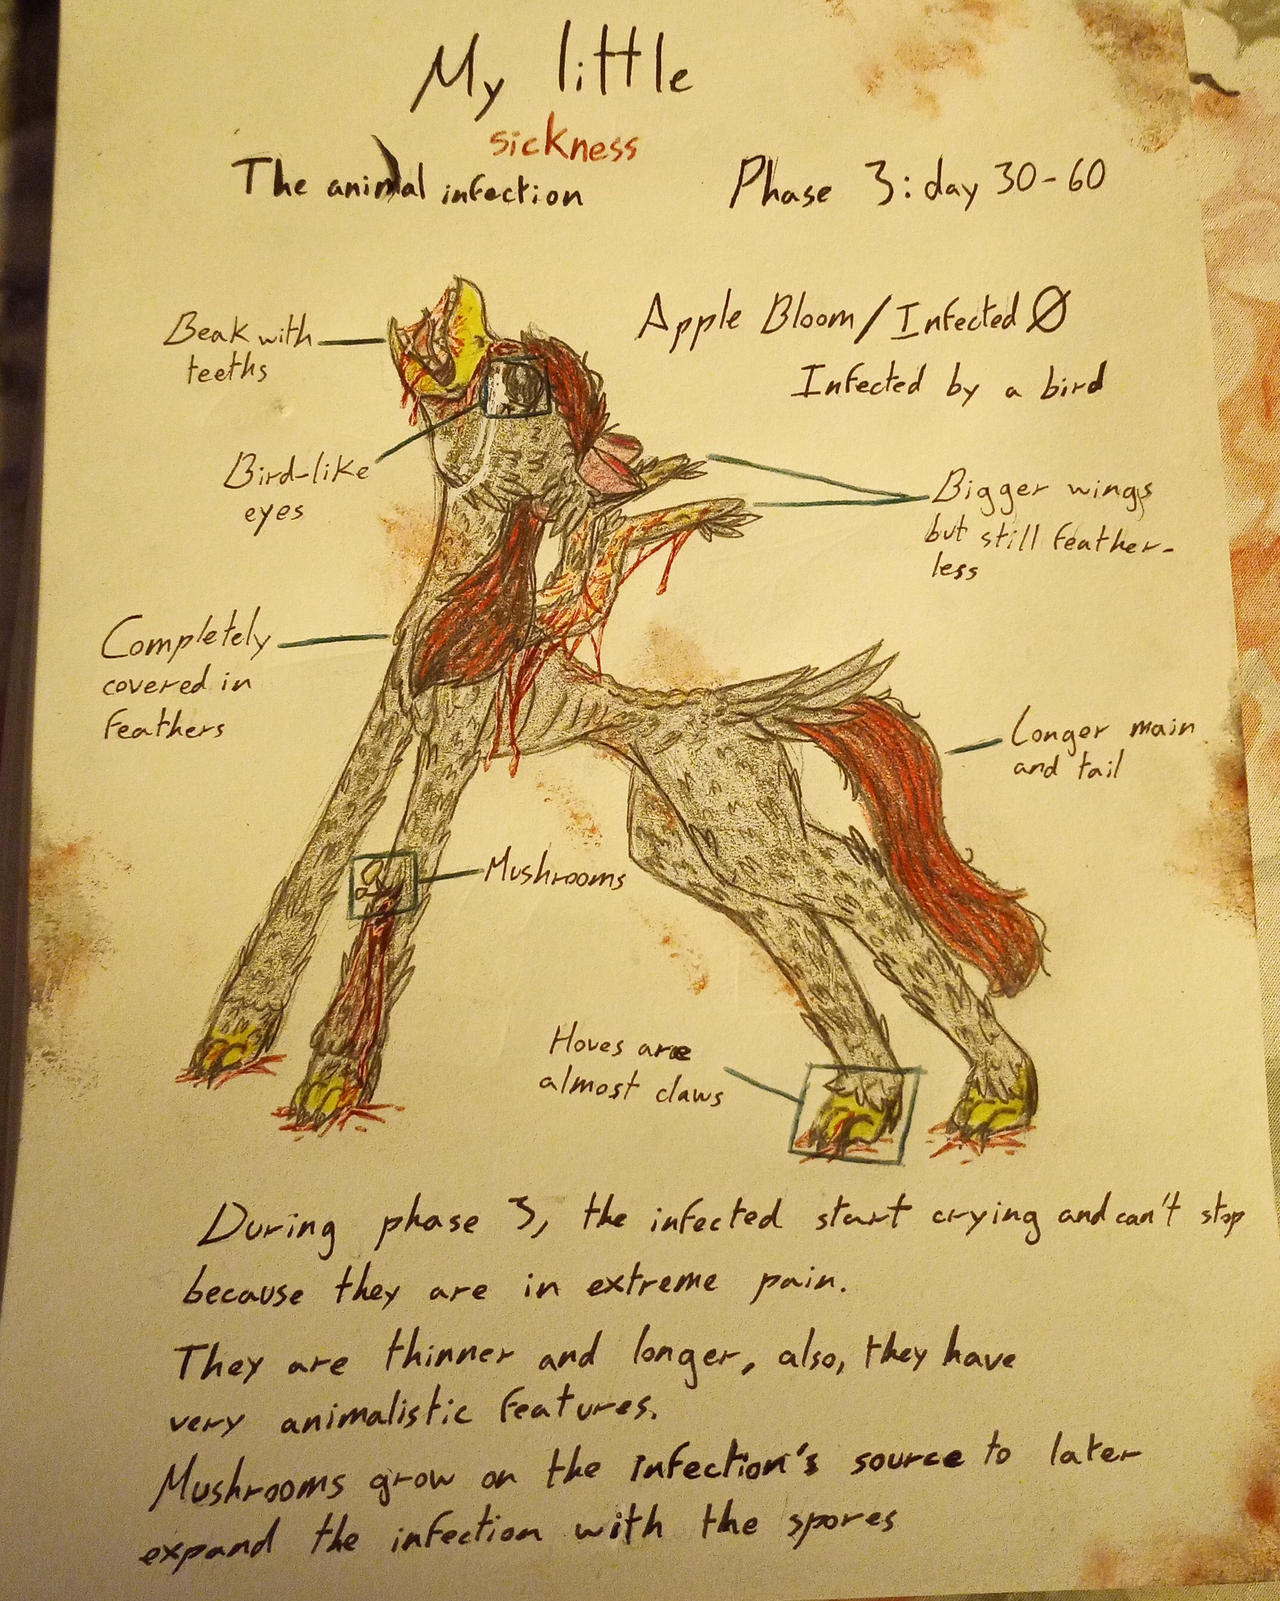 My little
sickness
The animal infection
Phase 3: day 30-60
Apple Bloom/Infected Ø
Infected by a bird
Beak with
teeths
Bird-like
eyes
Bigger wings
but still feather-
less
Completely
covered in
feathers
Longer main
and tail
Mushrooms
Hoves are
almost claws
During phase 3, the infected start crying and can't stop
because they are in extreme pain.
They are thinner and longer, also, they have
very animalistic features.
Mushrooms grow on the infection's source to later
expand the infection with the spores